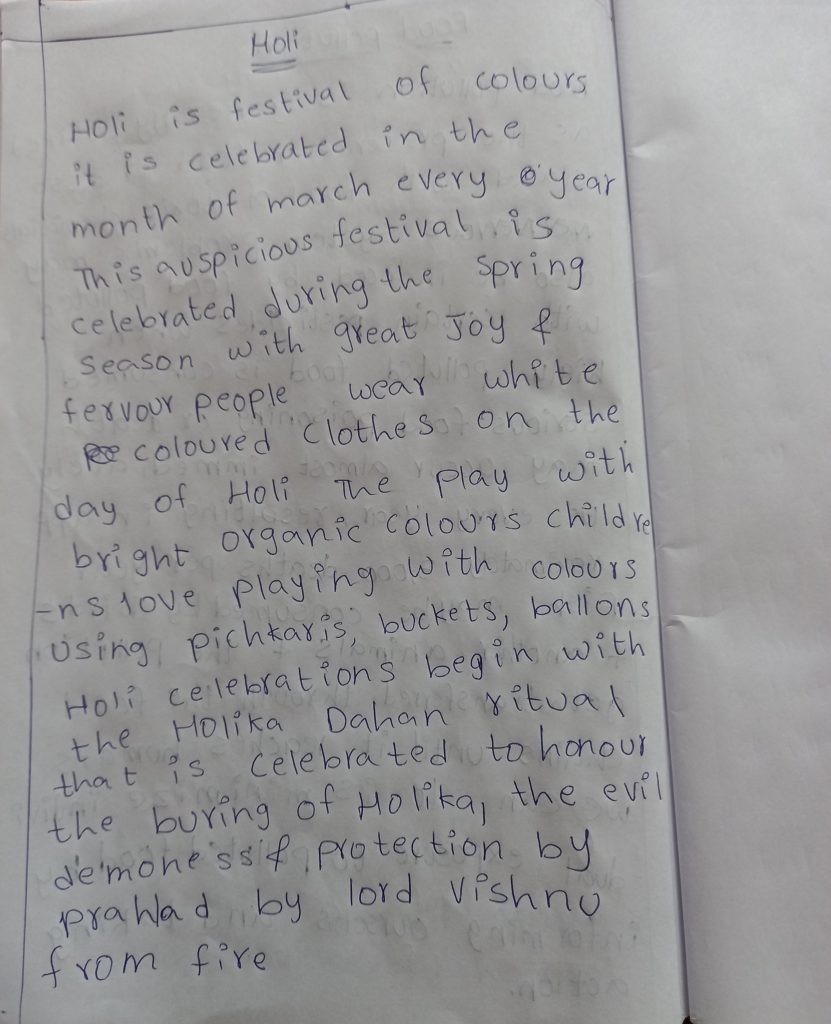 Holi
Holi is festival of colours
it is celebrated in the
month of march every year
This auspicious festival is
celebrated during the spring
season with great Joy &
fervour people wear white
coloured clothes on the
day of Holi The play with
bright organic colours childre
-ns love playing with colours
using pichkaris, buckets, ballons
Holi celebrations begin with
the Holika Dahan ritual
that is celebrated to honour
the buring of Holika, the evil
demoness & protection by
prahlad by lord vishnu
from fire